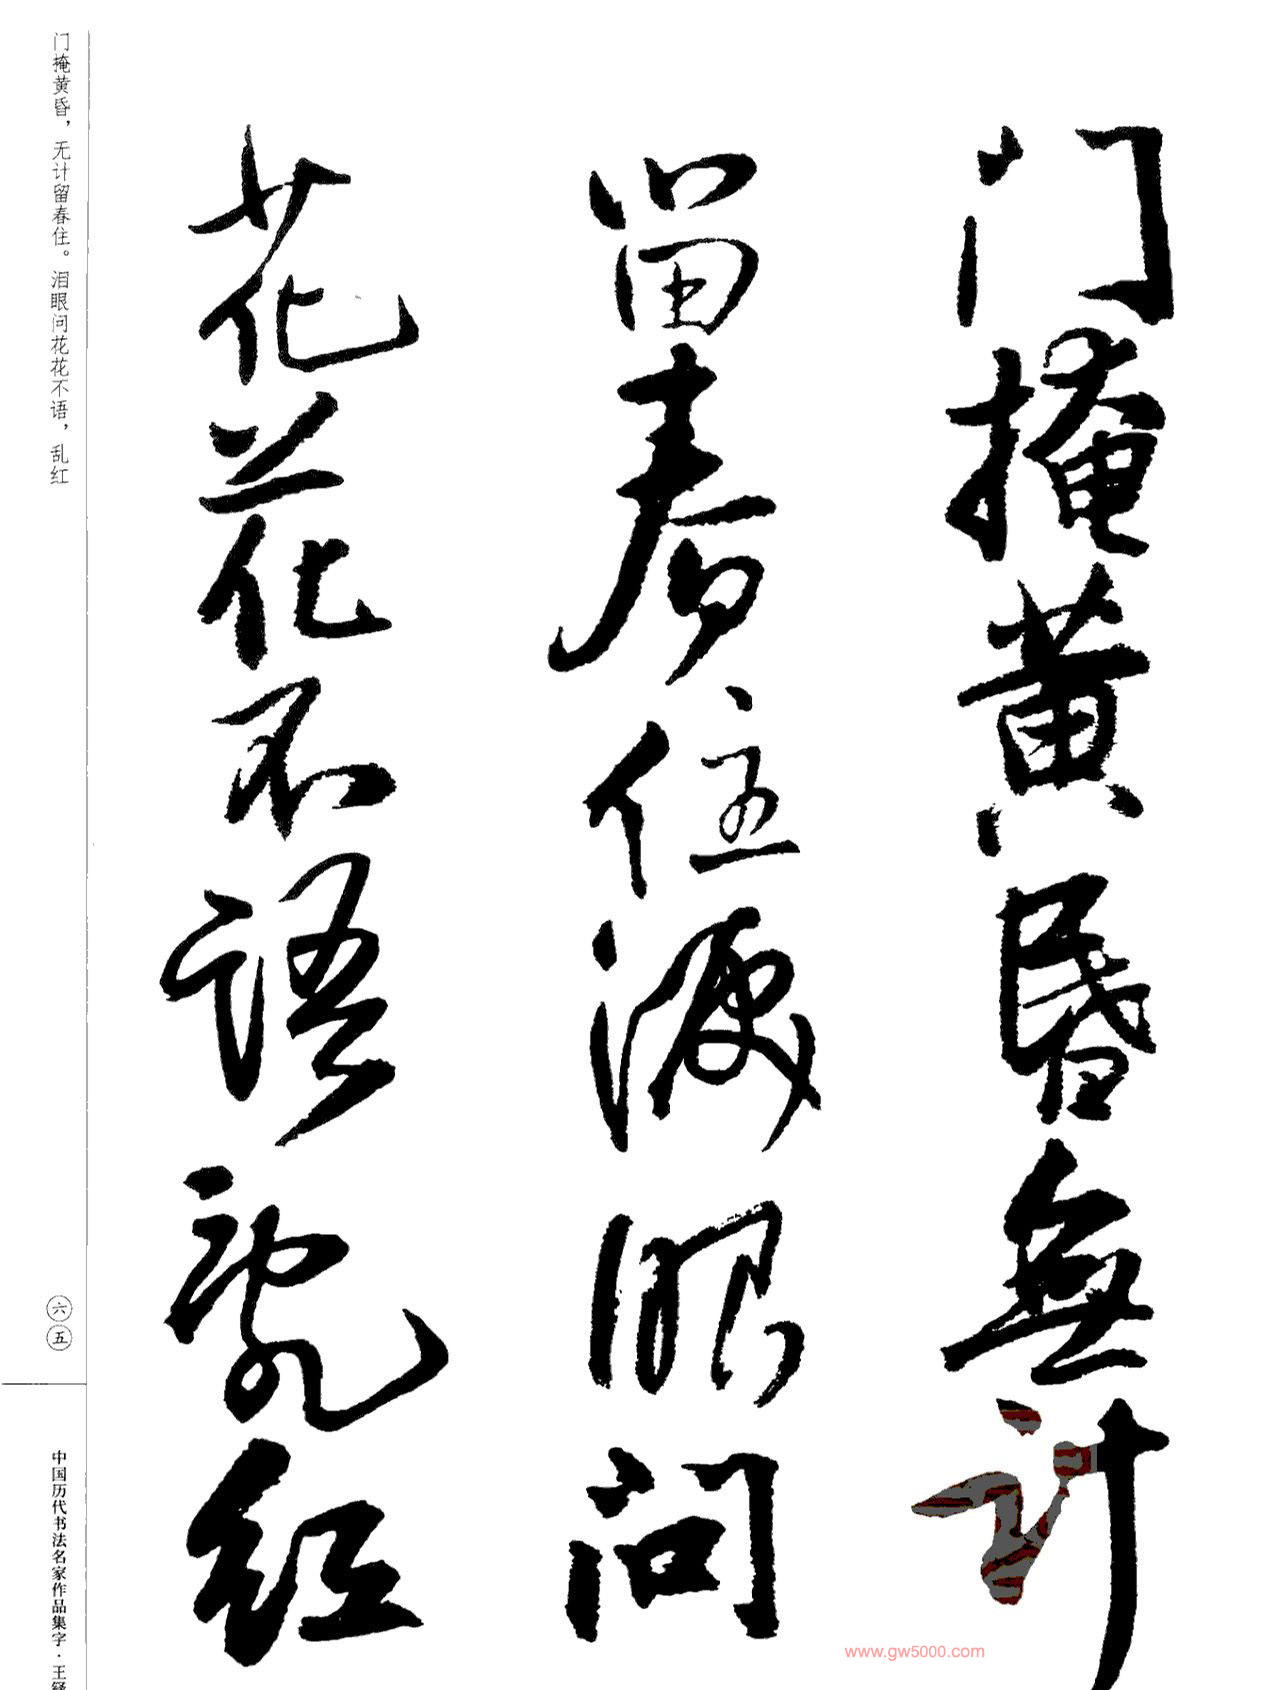 门掩黄昏無计
留春住淚眼问
花花不语亂红
门掩黄昏，无计留春住。泪眼问花花不语，乱红
六五
中国历代书法名家作品集字·王铎
www.gw5000.com